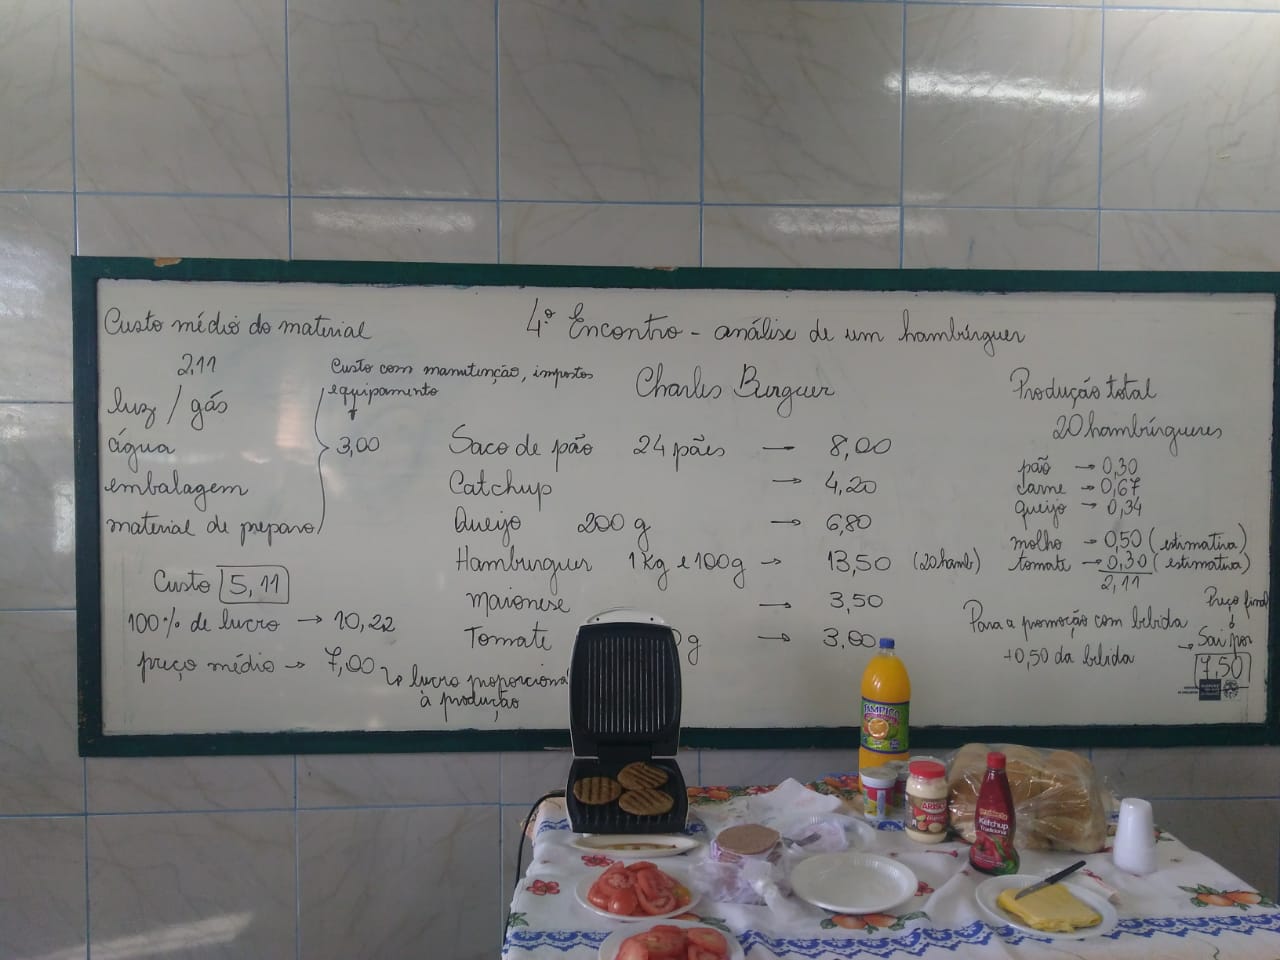 4º Encontro - análise de um hambúrguer
Custo médio do material
2,11
luz / gás
água
embalagem
material de preparo
Custo com manutenção, impostos
equipamento
3,00
Custo 5,11
100% de lucro → 10,22
preço médio → 7,00
↳ lucro proporcional
à produção
Charles Burguer
Saco de pão 24 pães → 8,00
Catchup → 4,20
Queijo 200 g → 6,80
Hamburguer 1 Kg e 100g → 13,50 (20 hamb)
Maionese → 3,50
Tomate g → 3,00
Produção total
20 hambúrgueres
pão → 0,30
carne → 0,67
queijo → 0,34
molho → 0,50 (estimativa)
tomate → 0,30 (estimativa)
2,11
Para a promoção com bebida
+0,50 da bebida
Preço final
→ Sai por
7,50
TAMPICO
ARISCO
Ketchup
Tradicional